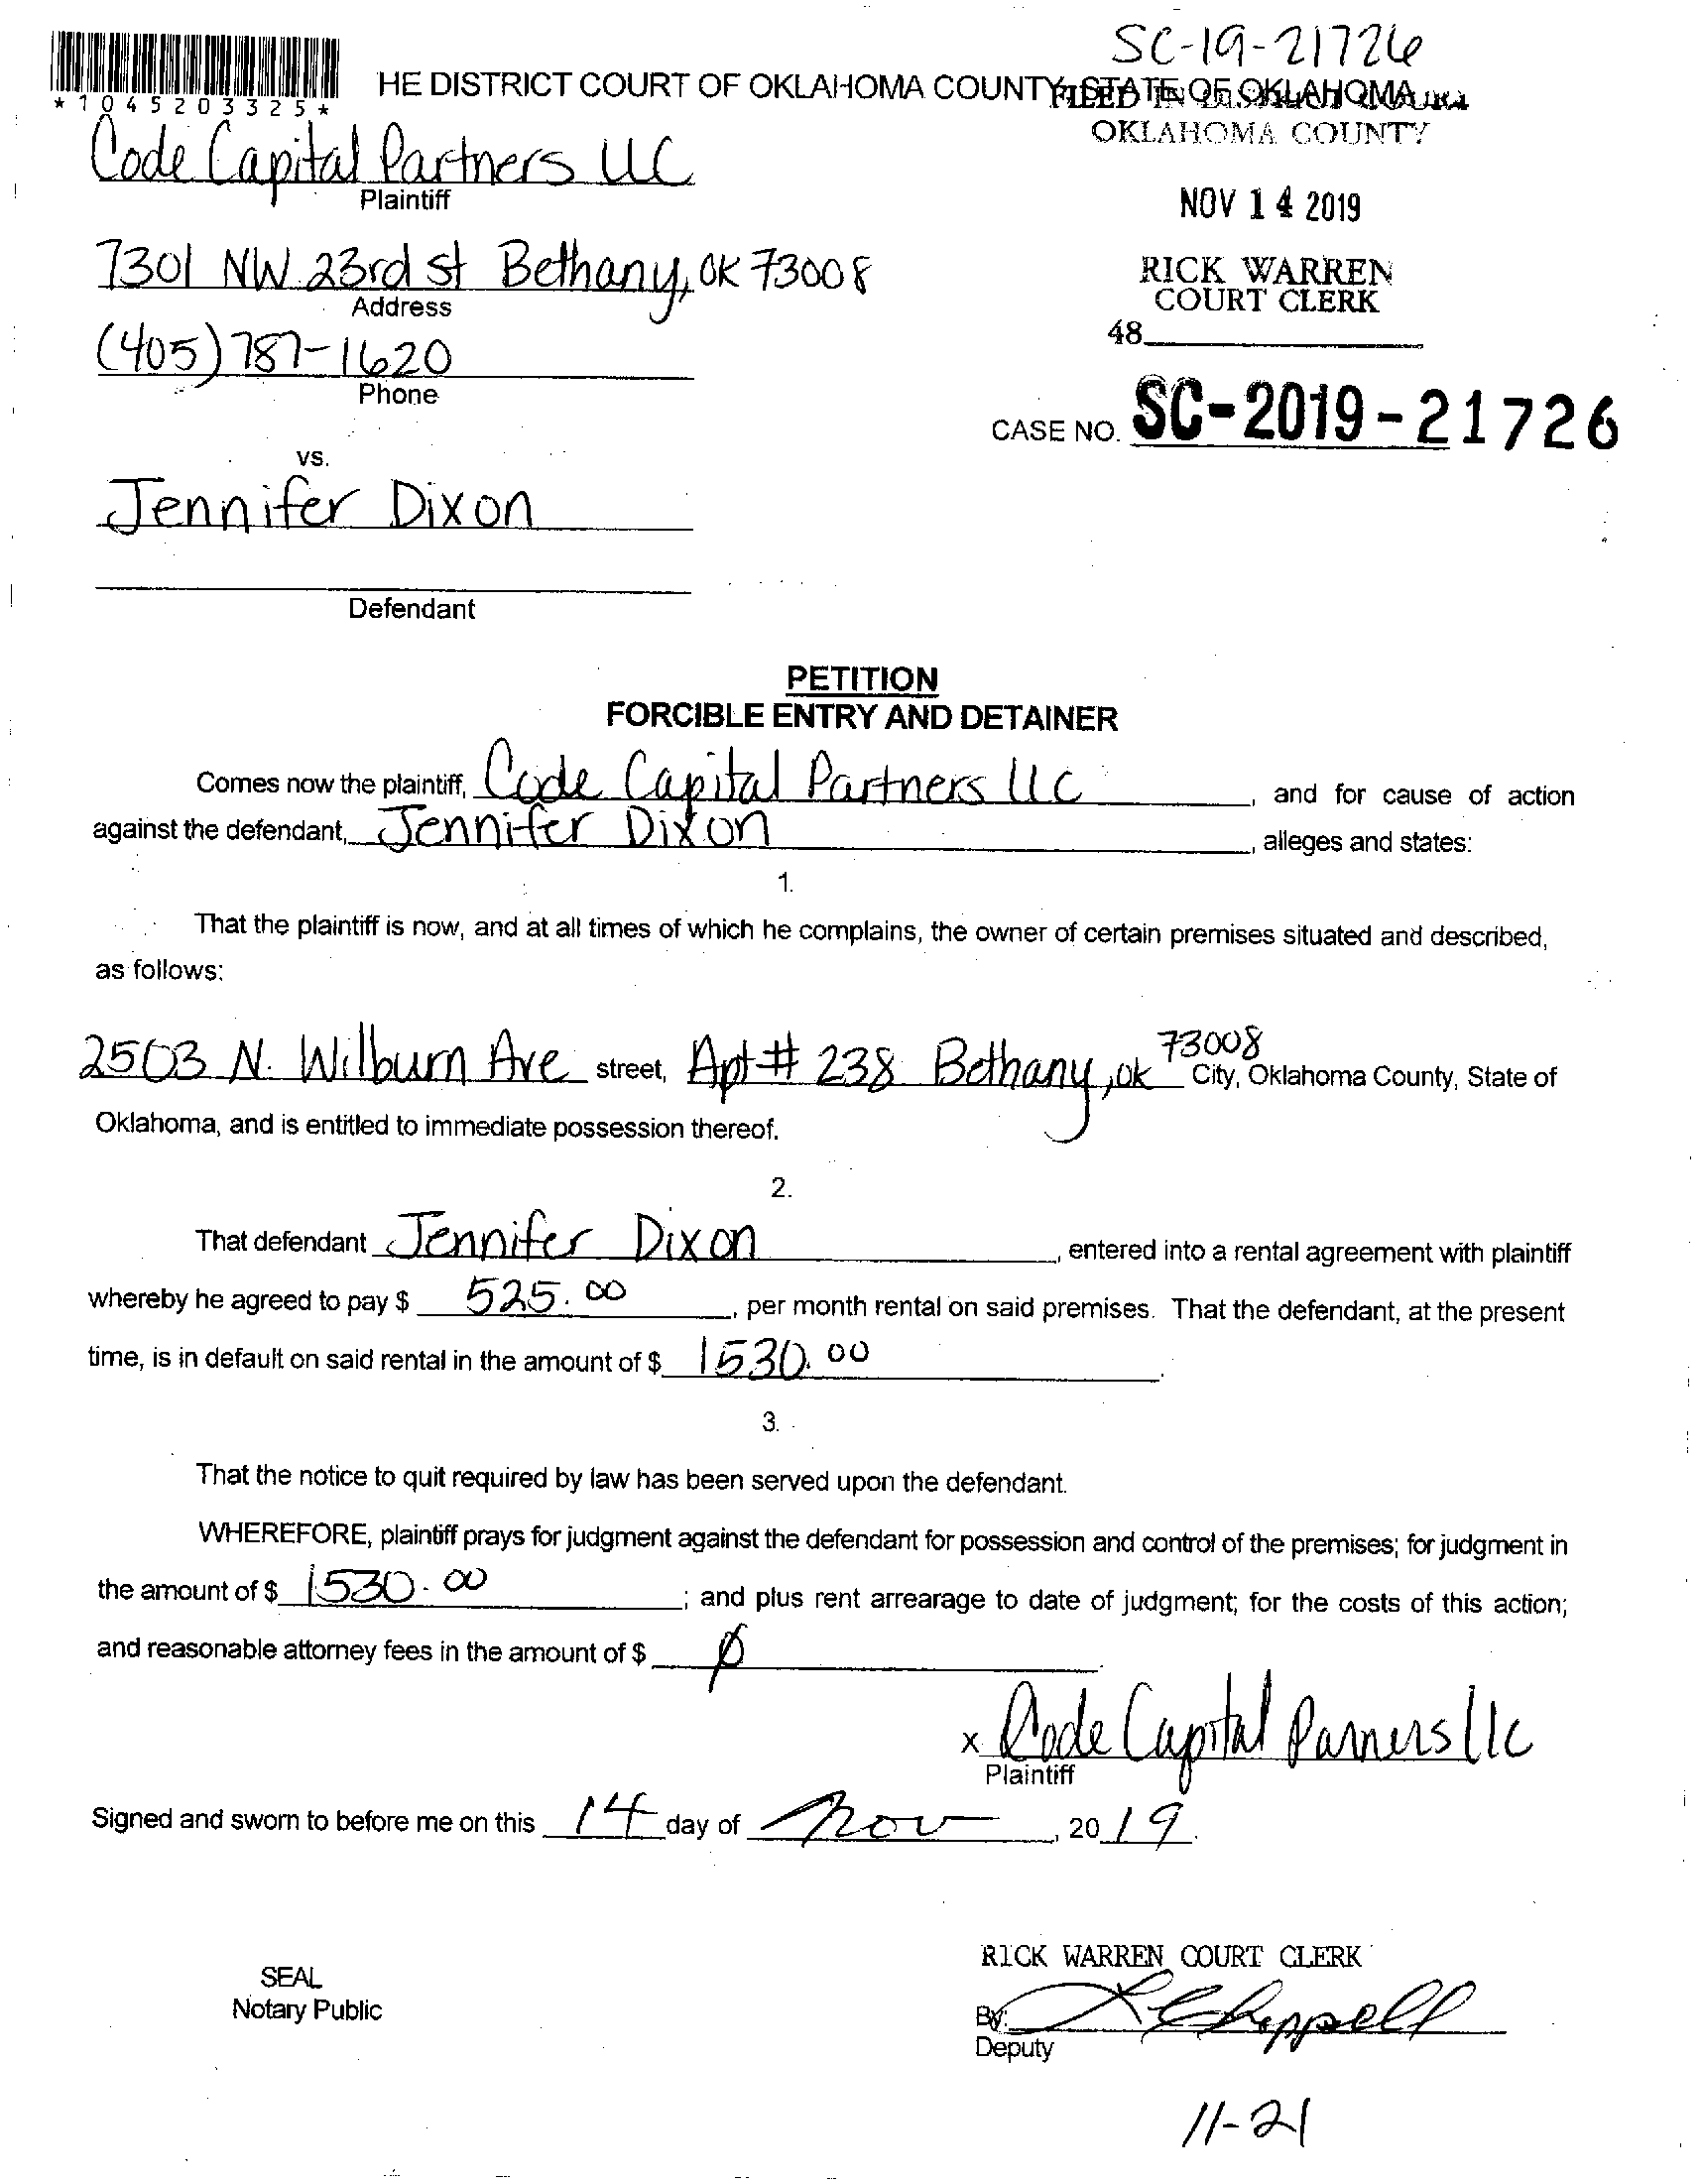 SC-19-21726
HE DISTRICT COURT OF OKLAHOMA COUNTY, STATE OF OKLAHOMA
*1045203325*
FILED IN
OKLAHOMA COUNTY
Code Capital Partners LLC
Plaintiff
NOV 14 2019
7301 NW 23rd st Bethany, OK 73008
Address
RICK WARREN
COURT CLERK
48
(405) 787-1620
Phone
CASE NO. SC-2019-21726
vs.
Jennifer Dixon
Defendant
PETITION
FORCIBLE ENTRY AND DETAINER
Comes now the plaintiff, Code Capital Partners llc, and for cause of action
against the defendant, Jennifer Dixon, alleges and states:
1.
That the plaintiff is now, and at all times of which he complains, the owner of certain premises situated and described,
as follows:
2503 N. Wilburn Ave street, Apt # 238 Bethany, OK 73008 City, Oklahoma County, State of
Oklahoma, and is entitled to immediate possession thereof.
2.
That defendant Jennifer Dixon, entered into a rental agreement with plaintiff
whereby he agreed to pay $ 525.00, per month rental on said premises. That the defendant, at the present
time, is in default on said rental in the amount of $ 1530.00.
3.
That the notice to quit required by law has been served upon the defendant.
WHEREFORE, plaintiff prays for judgment against the defendant for possession and control of the premises; for judgment in
the amount of $ 1530.00; and plus rent arrearage to date of judgment; for the costs of this action;
and reasonable attorney fees in the amount of $ Ø.
x Code Capital Parners llc
Plaintiff
Signed and sworn to before me on this 14 day of Nov, 2019.
RICK WARREN COURT CLERK
SEAL
Notary Public
By: L Chappell
Deputy
11-21